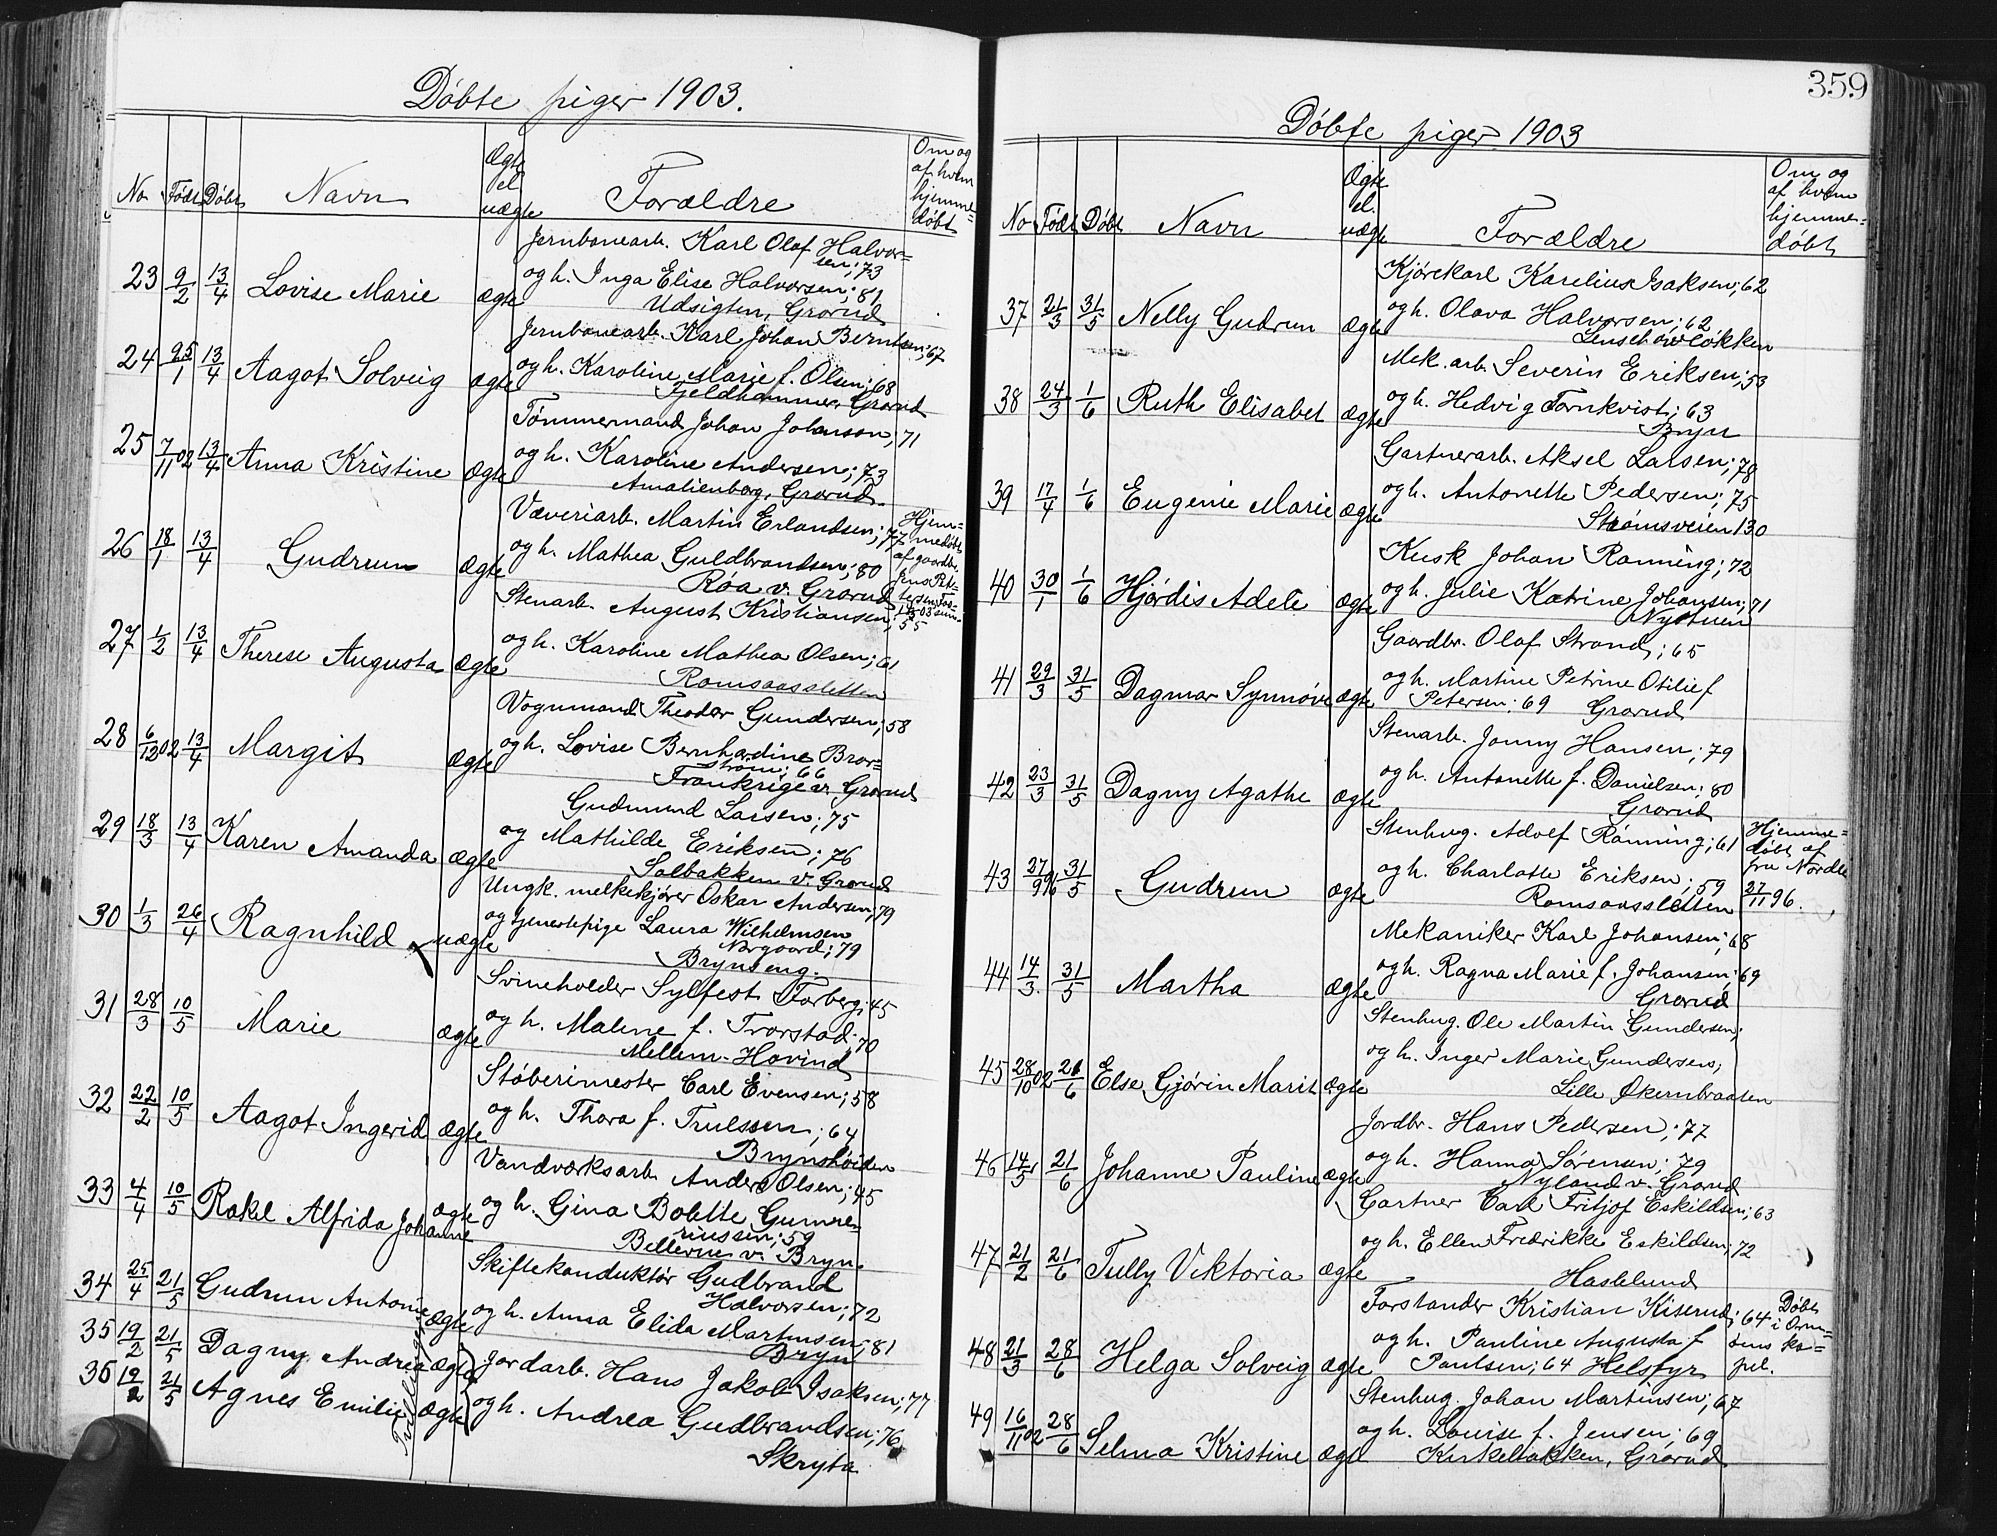 Döbte piger 1903.
No Född Döbt Navn Ægte el uægte Forældre Om og af hvem hjemme-döbt
Jernbanearb. Karl Olaf Halvor-
sen; 73
23 9/2 13/4 Lovise Marie ægte og h. Inga Elise Halvorsen; 81
Udsigten, Grorud
Jernbanearb. Karl Johan Berntsen; 67
24 25/1 13/4 Aagot Solveig ægte og h. Karoline Marie f. Olsen; 68
Fjeldhammer, Grorud
Tømmermand Johan Johanson, 71
25 7/11 02 13/4 Anna Kristine ægte og h. Karoline Andersen; 73
Amalienborg, Grorud
Væveriarb. Martin Erlandsen; 77 Hjem-
medøbt
26 18/1 13/4 Gudrun ægte og h. Mathea Guldbrandsen; 80 af gaardbr.
Røa v. Grorud Jens Pet-
tersen
Stenarb. August Kristiansen; 55
27 1/2 13/4 Therese Augusta ægte og h. Karoline Mathea Olsen; 61
Romsaassletten
Vognmand Theodor Gundersen; 58
28 6/12 02 13/4 Margit ægte og h. Lovise Bernhardine Bror-
strøm; 66
Frankrige v. Grorud
Gudmund Larsen; 75
29 18/3 13/4 Karen Amanda ægte og Mathilde Eriksen; 76
Solbakken v. Grorud
Ungk. melkekjører Oskar Andersen; 79
30 1/3 26/4 Ragnhild uægte og tjenestepige Laura Wilhelmsen
Norgaard; 79
Brynseng.
Svineholder Sylfest Forberg; 45
31 28/3 10/5 Marie ægte og h. Malene f. Trorstad; 70
Mellem-Hovind
Støberimester Carl Evensen; 58
32 22/2 10/5 Aagot Ingerid ægte og h. Thora f. Trulssen; 64
Brynshöiden
Vandværksarb. Anders Olsen; 45
33 4/4 10/5 Rakel Alfrida Johanne ægte og h. Gina Bolette Gunne-
riussen; 59
Bellevue v. Bryn
Skiftekonduktör Gudbrand
Halvorsen; 72
34 25/4 21/5 Gudrun Antonie ægte og h. Anna Elida Martinsen; 81
Bryn
35 19/2 21/5 Dagny Andrea ægte Jordarb. Hans Jakob Isaksen; 77
36 19/2 21/5 Agnes Emilie ægte og h. Andrea Gudbrandsen; 76
Skryta
359
Döbte piger 1903
No Född Döbt Navn Ægte el. uægte Forældre Om og af hvem hjemme-døbt
Kjørekarl Karelius Isaksen; 62
37 21/3 31/5 Nelly Gudrun ægte og h. Olava Halvorsen; 62
Mek. arb. Severin Eriksen; 53
38 24/3 1/6 Ruth Elisabet ægte og h. Hedvig Tornkvist; 63
Bryn
Gartnerarb. Aksel Larsen; 78
39 17/4 1/6 Eugenie Marie ægte og h. Antonette Pedersen; 75
Strømsveien 130
Kusk Johan Ranning; 72
40 30/1 1/6 Hjördis Adele ægte og h. Julie Katrine Johansen; 71
Nystuen
Gaardbr. Olaf Strand; 65
41 29/3 31/5 Dagmar Synnöve ægte og h. Martine Petrine Otilie f
Petersen; 69 Grorud
Stenarb. Jonny Hansen; 79
42 23/3 31/5 Dagny Agathe ægte og h. Antonette f. Danielsen; 80
Grorud
Stenhug. Adolf Rönning; 61 Hjemme-
døbt af
43 27/9 96 31/5 Gudrun ægte og h. Charlotte Eriksen; 59 fru Nordli
Romsaassletten 27/11 96.
Mekaniker Karl Johansen; 68
44 14/3 31/5 Martha ægte og h. Ragna Marie f. Johansen; 69
Grorud
Stenhug. Ole Martin Gundersen;
45 28/10 02 21/6 Else Gjörin Marit ægte og h. Inger Marie Gundersen;
Lille Økernbraaten
Jordbr. Hans Pedersen; 77
46 14/5 21/6 Johanne Pauline ægte og h. Hanna Sørensen; 79
Nyland v. Grorud
Gartner Carl Fritjof Eskildsen; 63
47 21/2 21/6 Tully Viktoria ægte og h. Ellen Fredrikke Eskildsen; 72
Haslelund
Forstander Kristian Kiserud; 64 Døbt
i Orm-
48 21/3 28/6 Helga Solveig ægte og h. Pauline Augusta f sens ka-
Paulsen; 64 Helsfyr pel.
Stenhug. Johan Martinsen; 67
49 16/11 02 28/6 Selma Kristine ægte og h. Louise f. Jensen; 69
Kirkebakken, Grorud